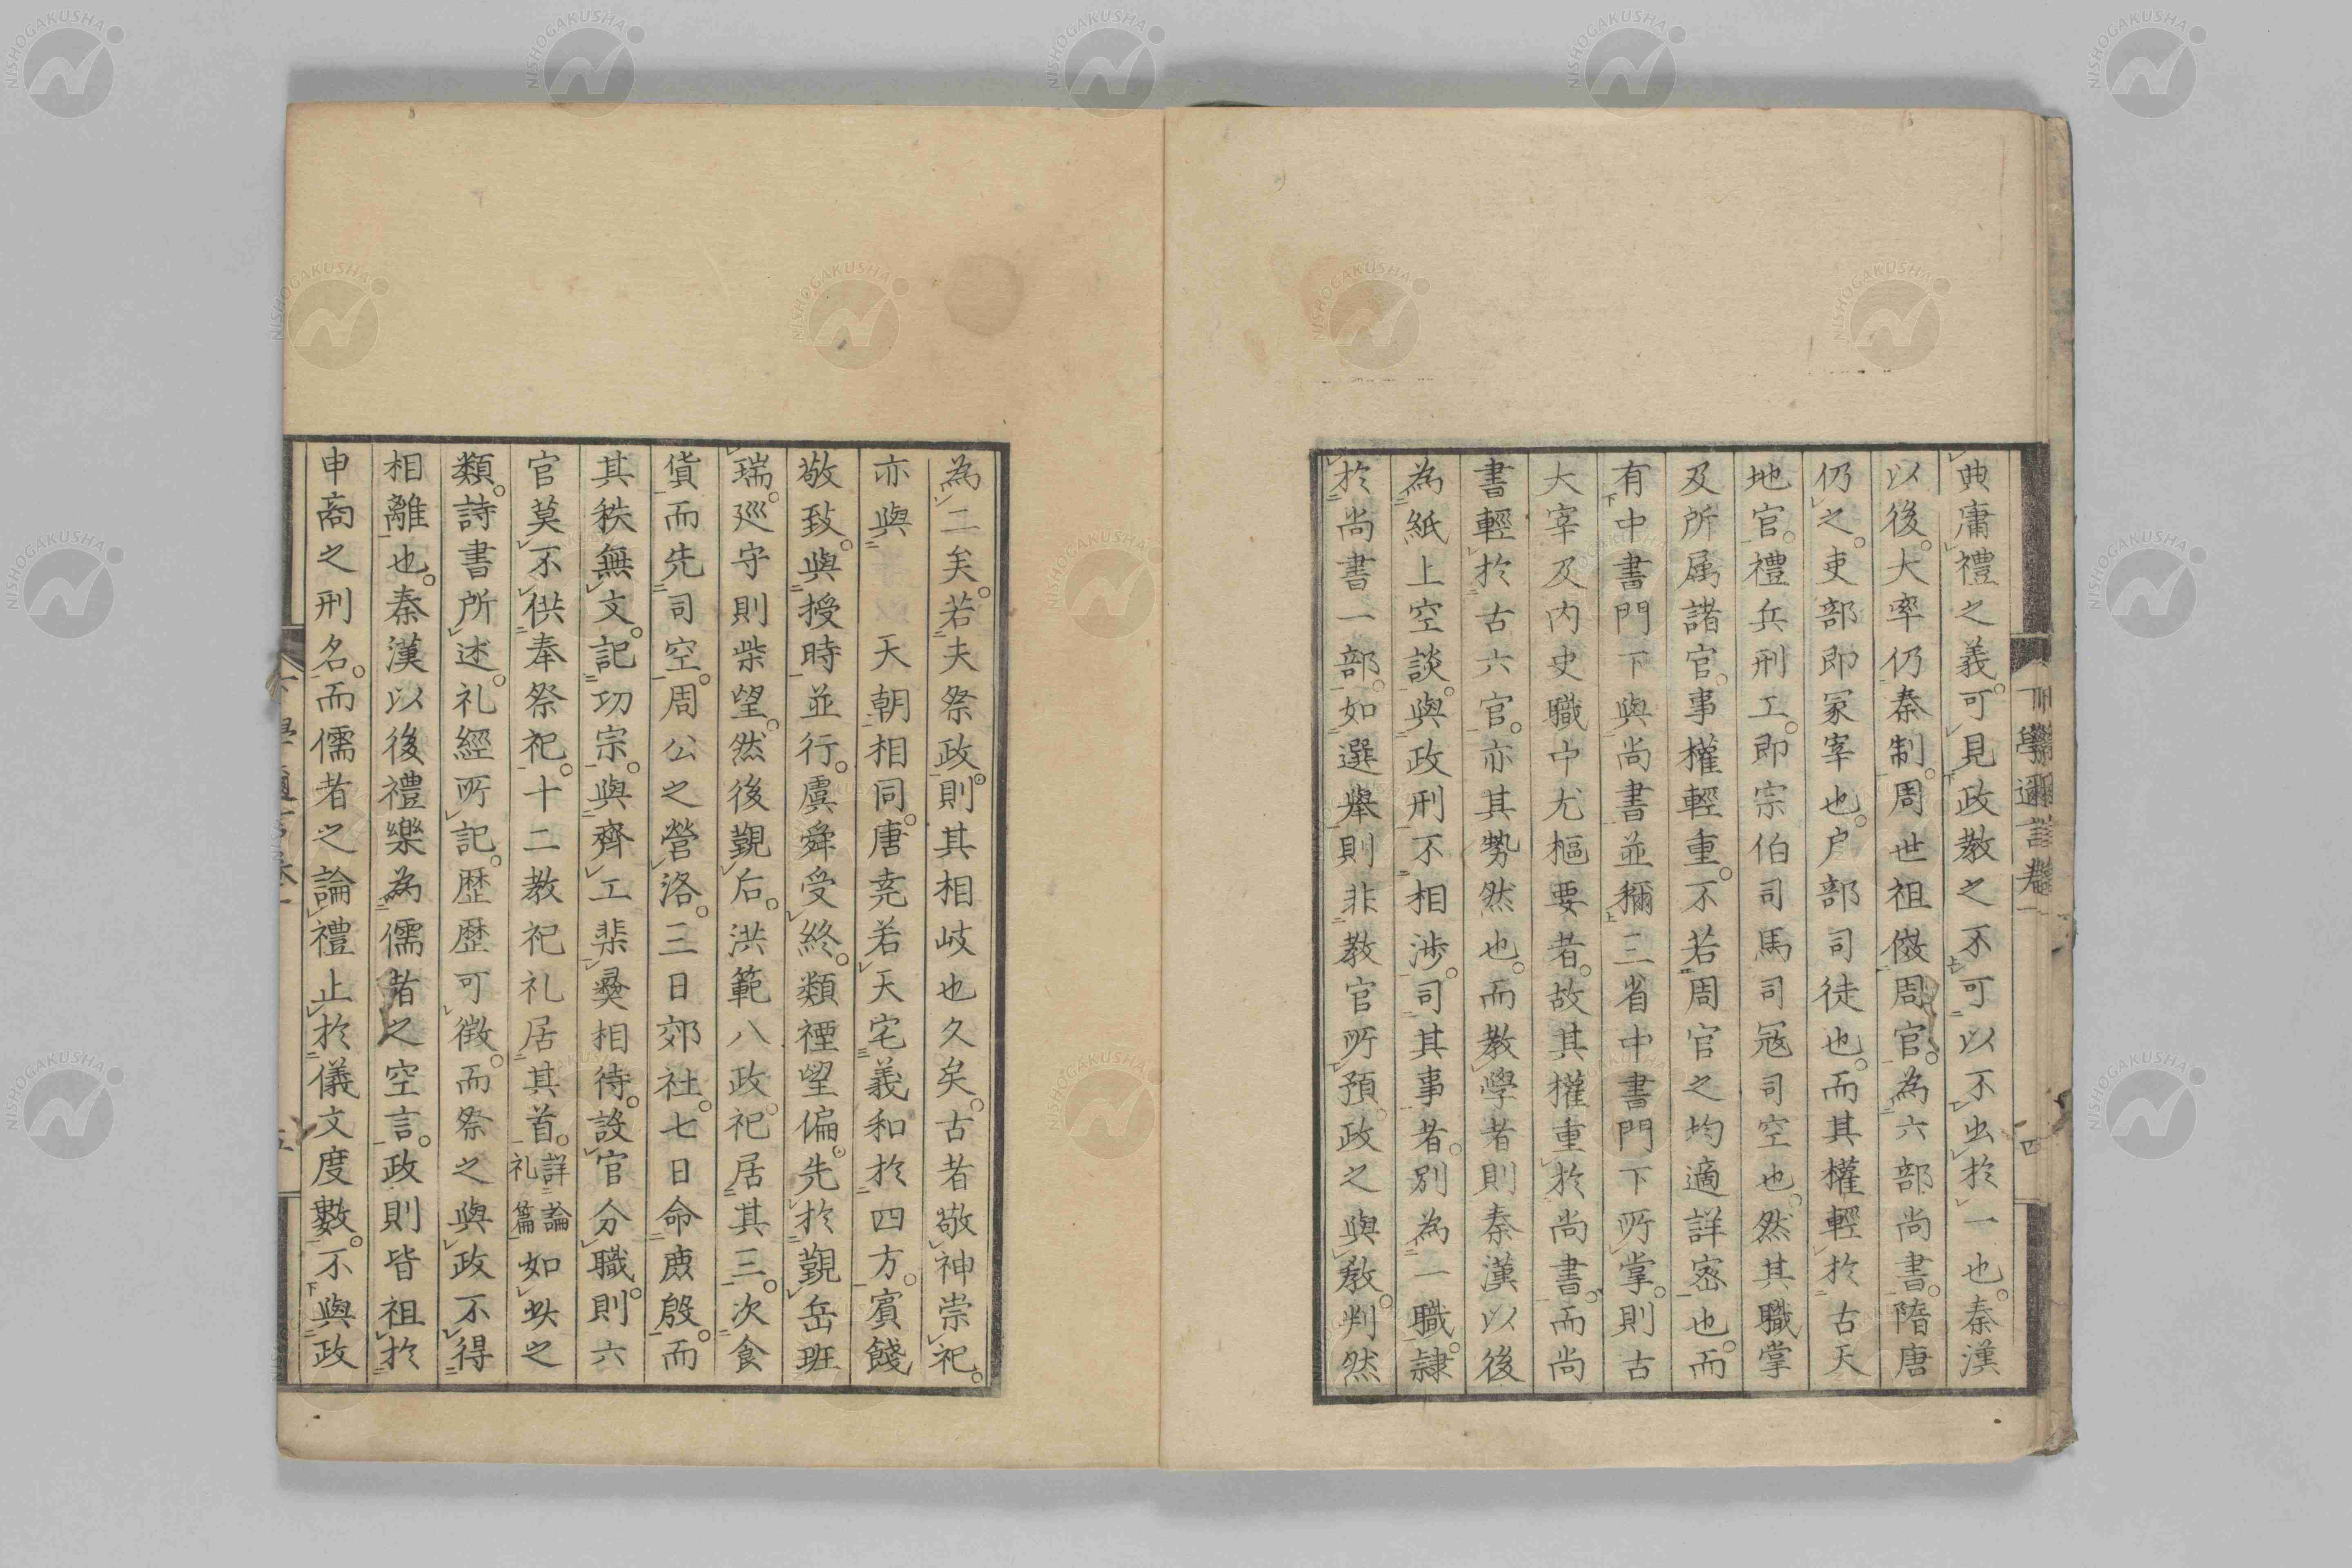 典庸禮之義。可見政教之不可以不出於一也。秦漢
以後。大率仍秦制。周世祖傚周官。為六部尚書。隋唐
仍之。吏部即冢宰也。戶部司徒也。而其權輕於古天
地官。禮兵刑工。即宗伯司馬司冦司空也。然其職掌
及所属諸官。事權輕重。不若周官之均適詳密也。而
有中書門下與尚書並稱三省中書門下所掌。則古
大宰及内史職中尤樞要者。故其權重於尚書。而尚
書輕於古六官。亦其勢然也。而教學者則秦漢以後
為紙上空談。與政刑不相渉。司其事者。別為一職。隷
於尚書一部。如選舉則非教官所預。政之與教。判然
下學邇言卷一
四
為二矣。若夫祭政。則其相岐也久矣。古者敬神崇祀。
亦與天朝相同。唐尭若天宅羲和於四方。賓餞
敬致。與授時並行。虞舜受終。類禋望偏。先於觀岳班
瑞。廵守則柴望。然後觀后。洪範八政。祀居其三。次食
貨而先司空。周公之營洛。三日郊社。七日命庶殷。而
其秩無文。記功宗。與齊工棐彛相待。設官分職。則六
官莫不供奉祭祀。十二教祀礼居其首。詳論礼篇如此之
類。詩書所述。礼經所記。歴歴可徴。而祭之與政不得
相離也。秦漢以後禮樂為儒者之空言。政則皆祖於
申商之刑名。而儒者之論禮止於儀文度數。不與政